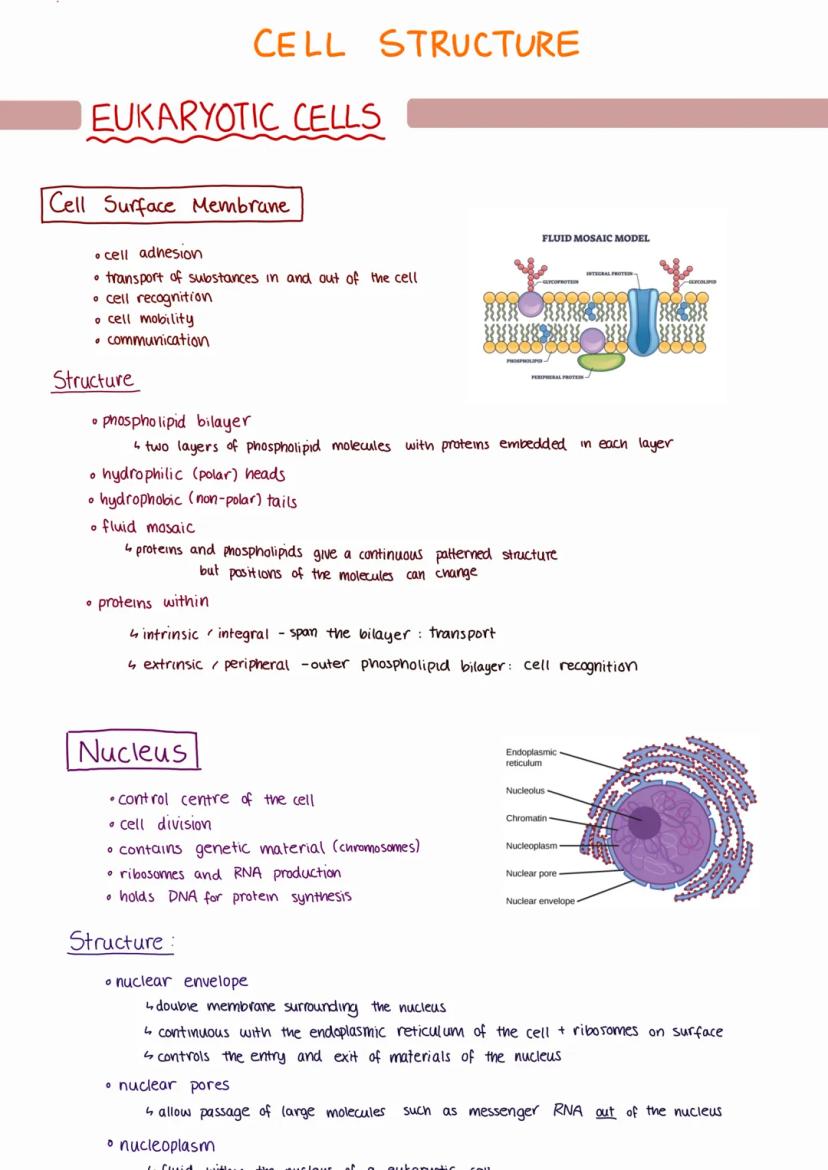 CELL STRUCTURE
EUKARYOTIC CELLS
Cell Surface Membrane
• cell adhesion
• transport of substances in and out of the cell
• cell recognition
• cell mobility
• communication
FLUID MOSAIC MODEL
INTEGRAL PROTEIN
GLYCOPROTEIN
GLYCOLIPID
PHOSPHOLIPID
PERIPHERAL PROTEIN
Structure
• phospholipid bilayer
↳ two layers of phospholipid molecules with proteins embedded in each layer
• hydrophilic (polar) heads
• hydrophobic (non-polar) tails
• fluid mosaic
↳ proteins and phospholipids give a continuous patterned structure
but positions of the molecules can change
• proteins within
↳ intrinsic / integral - span the bilayer : transport
↳ extrinsic / peripheral - outer phospholipid bilayer : cell recognition
Nucleus
• control centre of the cell
• cell division
• contains genetic material (chromosomes)
• ribosomes and RNA production
• holds DNA for protein synthesis
Endoplasmic
reticulum
Nucleolus
Chromatin
Nucleoplasm
Nuclear pore
Nuclear envelope
Structure :
• nuclear envelope
↳ double membrane surrounding the nucleus
↳ continuous with the endoplasmic reticulum of the cell + ribosomes on surface
↳ controls the entry and exit of materials of the nucleus
• nuclear pores
↳ allow passage of large molecules such as messenger RNA out of the nucleus
• nucleoplasm
↳ fluid within the nucleus of a eukaryotic cell